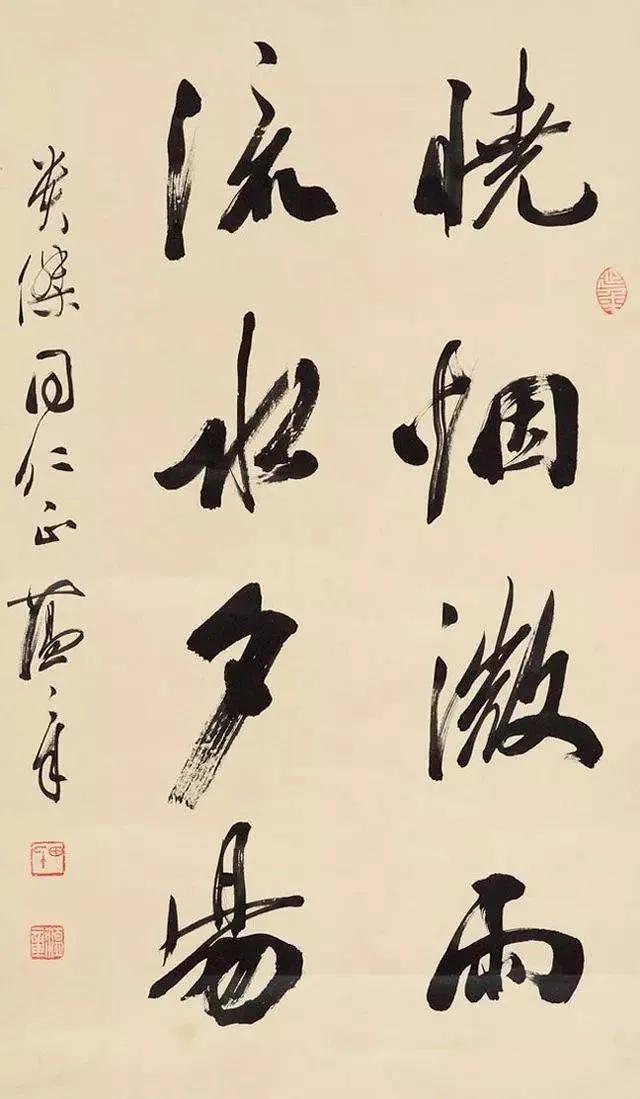 曉烟微雨
流水夕陽
傑同仁正